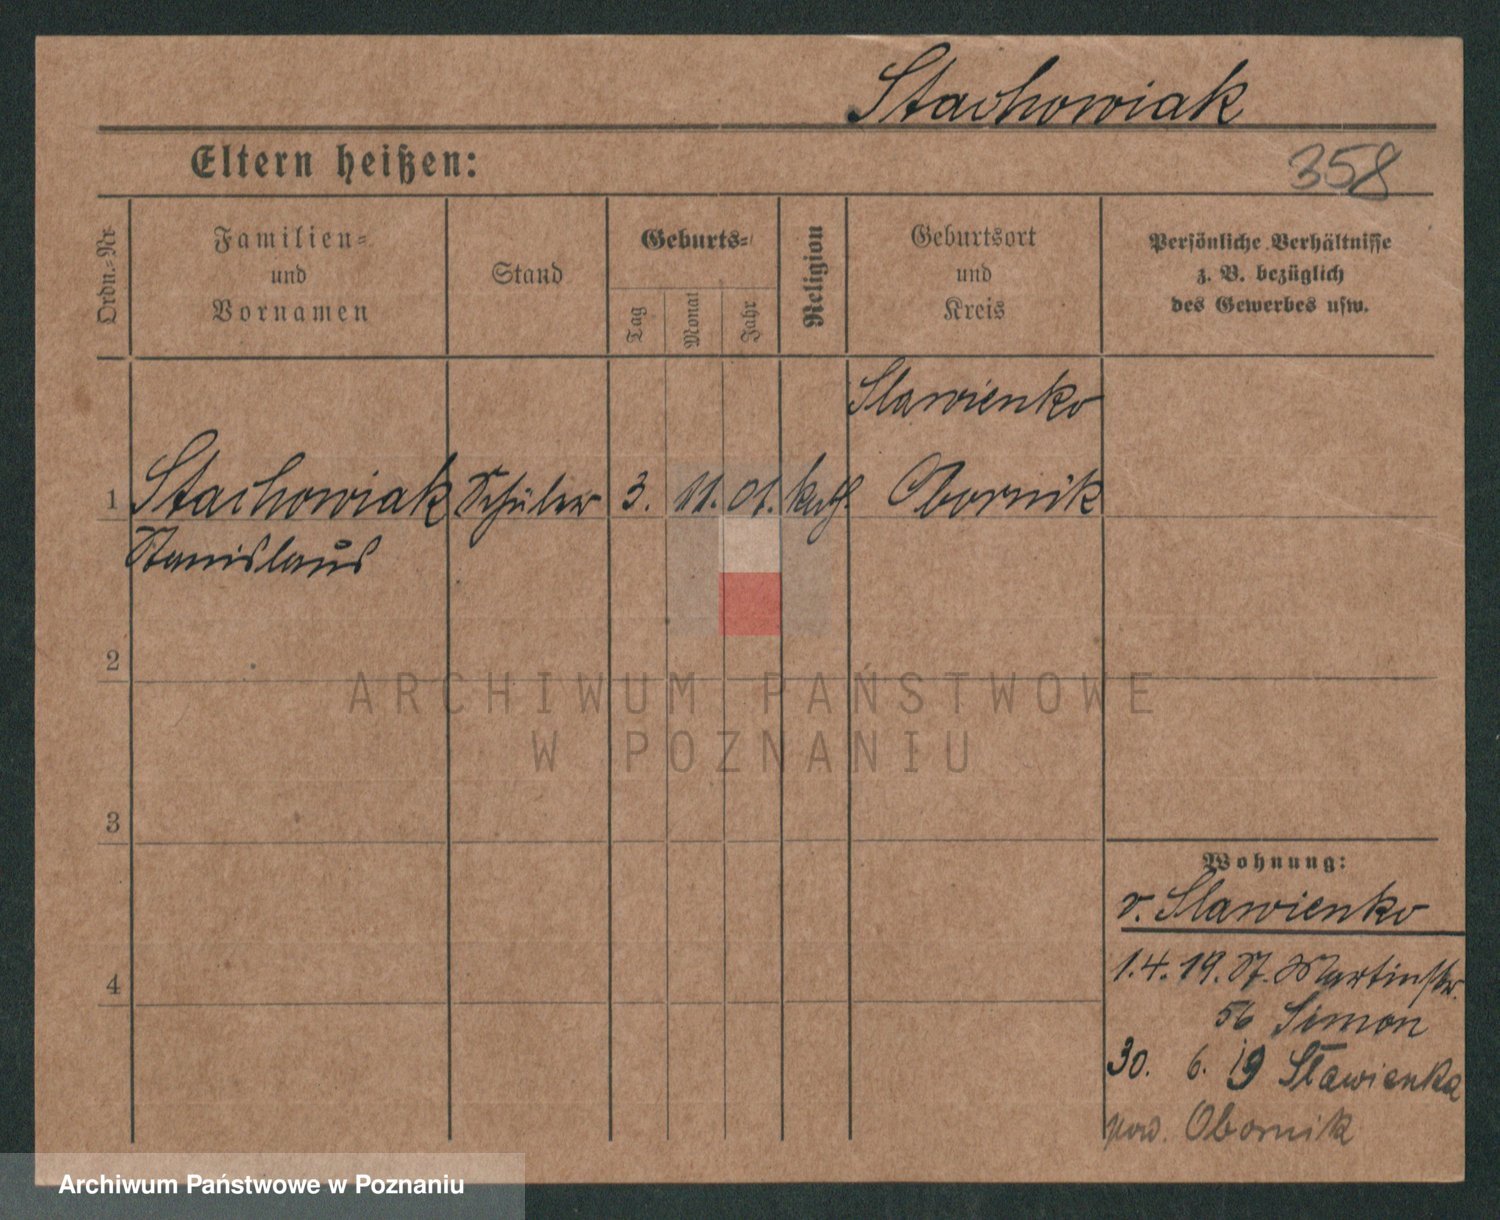 Stachowiak
Eltern heißen:
358
Ordn.-Nr.
Familien-
und
Vornamen
Stand
Geburts-
Tag
Monat
Jahr
Religion
Geburtsort
und
Kreis
Persönliche Verhältnisse
z. B. bezüglich
des Gewerbes usw.
Slawienko
1 Stachowiak Schüler 3. 11. 01. kath. Obornik
Stanislaus
2
ARCHIWUM PAŃSTWOWE
W POZNANIU
3
Wohnung:
v. Slawienko
4
1.4.19. St. Martinstr.
56 Simon
30. 6. 19 Sławienka
pow. Obornik
Archiwum Państwowe w Poznaniu